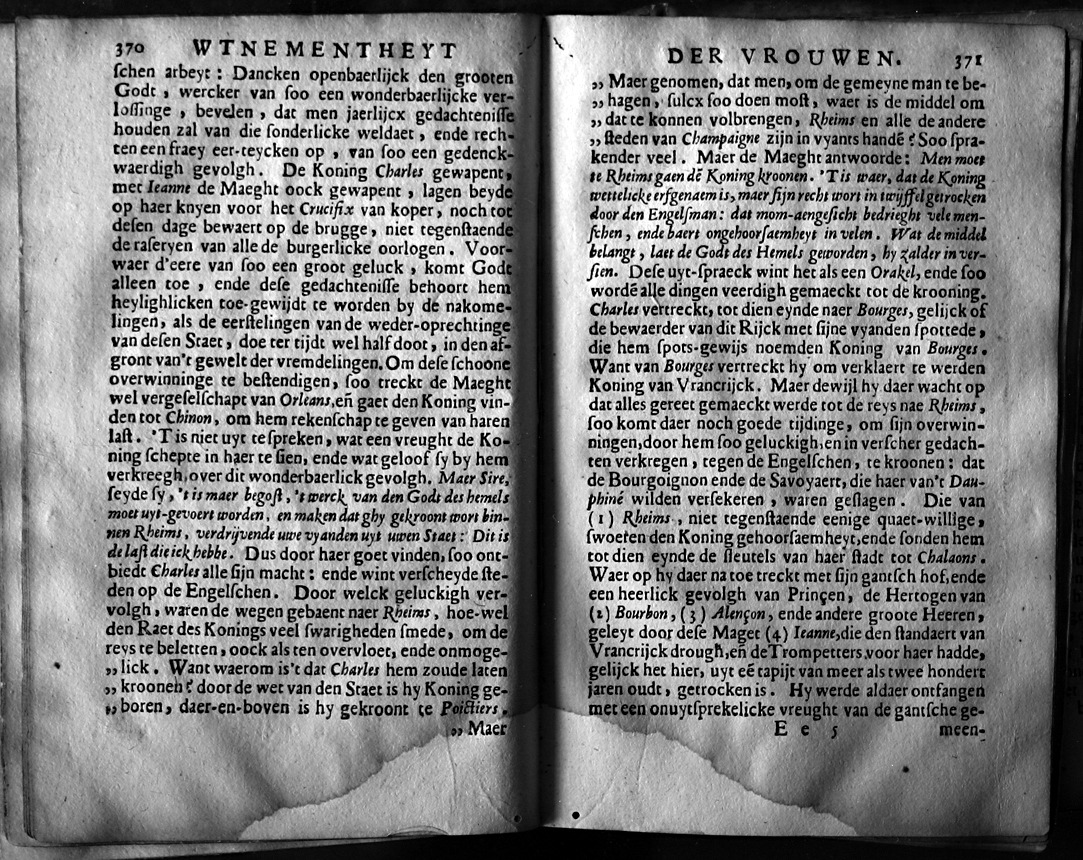 370 WTNEMENTHEYT
ſchen arbeyt : Dancken openbaerlijck den grooten
Godt , wercker van ſoo een wonderbaerlijcke ver-
loſſinge , bevelen , dat men jaerlijcx gedachteniſſe
houden zal van die ſonderlicke weldaet , ende rech-
ten een fraey eer-teycken op , van ſoo een gedenck-
waerdigh gevolgh. De Koning Charles gewapent,
met Ieanne de Maeght oock gewapent , lagen beyde
op haer knyen voor het Crucifix van koper, noch tot
deſen dage bewaert op de brugge, niet tegenſtaende
de raſeryen van alle de burgerlicke oorlogen. Voor-
waer d'eere van ſoo een groot geluck , komt Godt
alleen toe , ende deſe gedachteniſſe behoort hem
heylighlicken toe-gewijdt te worden by de nakome-
lingen, als de eerſtelingen van de weder-oprechtinge
van deſen Staet, doe ter tijdt wel half doot, in den af-
gront van't gewelt der vremdelingen. Om deſe ſchoone
overwinninge te beſtendigen, ſoo treckt de Maeght
wel vergeſelſchapt van Orleans,eñ gaet den Koning vin-
den tot Chinon, om hem rekenſchap te geven van haren
laſt. 'T is niet uyt te ſpreken, wat een vreught de Ko-
ning ſchepte in haer te ſien, ende wat geloof ſy by hem
verkreegh,over dit wonderbaerlick gevolgh. Maer Sire,
ſeyde ſy, 't is maer begoſt, 't werck van den Godt des hemels
moet uyt-gevoert worden, en maken dat ghy gekroont wort bin-
nen Rheims, verdrijvende uwe vyanden uyt uwen Staet: Dit is
de laſt die ick hebbe. Dus door haer goet vinden, ſoo ont-
biedt Charles alle ſijn macht : ende wint verſcheyde ſte-
den op de Engelſchen. Door welck geluckigh ver-
volgh, waren de wegen gebaent naer Rheims, hoe-wel
den Raet des Konings veel ſwarigheden ſmede, om de
reys te beletten, oock als ten overvloet, ende onmoge-
„ lick. Want waerom is't dat Charles hem zoude laten
„ kroonen? door de wet van den Staet is hy Koning ge-
„ boren, daer-en-boven is hy gekroont te Poictiers,
„ Maer
DER VROUWEN. 371
„ Maer genomen, dat men, om de gemeyne man te be-
„ hagen, ſulcx ſoo doen moſt, waer is de middel om
„ dat te konnen volbrengen, Rheims en alle de andere
„ ſteden van Champaigne zijn in vyants handẽ? Soo ſpra-
kender veel. Maer de Maeght antwoorde: Men moet
te Rheims gaen dẽ Koning kroonen. 'T is waer, dat de Koning
wettelicke erfgenaem is, maer ſijn recht wort in twijffel getrocken
door den Engelſman: dat mom-aengeſicht bedrieght vele men-
ſchen, ende baert ongehoorſaemheyt in velen. Wat de middel
belangt, laet de Godt des Hemels geworden, hy zalder in ver-
ſien. Deſe uyt-ſpraeck wint het als een Orakel, ende ſoo
wordẽ alle dingen veerdigh gemaeckt tot de krooning.
Charles vertreckt, tot dien eynde naer Bourges, gelijck of
de bewaerder van dit Rijck met ſijne vyanden ſpottede,
die hem ſpots-gewijs noemden Koning van Bourges.
Want van Bourges vertreckt hy om verklaert te werden
Koning van Vrancrijck. Maer dewijl hy daer wacht op
dat alles gereet gemaeckt werde tot de reys nae Rheims,
ſoo komt daer noch goede tijdinge, om ſijn overwin-
ningen,door hem ſoo geluckigh,en in verſcher gedach-
ten verkregen, tegen de Engelſchen, te kroonen: dat
de Bourgoignon ende de Savoyaert, die haer van't Dau-
phiné wilden verſekeren , waren geſlagen. Die van
(1) Rheims, niet tegenſtaende eenige quaet-willige,
ſwoeren den Koning gehoorſaemheyt,ende ſonden hem
tot dien eynde de ſleutels van haer ſtadt tot Chalaons.
Waer op hy daer na toe treckt met ſijn gantſch hof,ende
een heerlick gevolgh van Prinçen, de Hertogen van
(2) Bourbon, (3) Alençon, ende andere groote Heeren,
geleyt door deſe Maget (4) Ieanne,die den ſtandaert van
Vrancrijck drough,eñ de Trompetters,voor haer hadde,
gelijck het hier, uyt eẽ tapijt van meer als twee hondert
jaren oudt, getrocken is. Hy werde aldaer ontfangen
met een onuytſprekelicke vreught van de gantſche ge-
E e 5 meen-